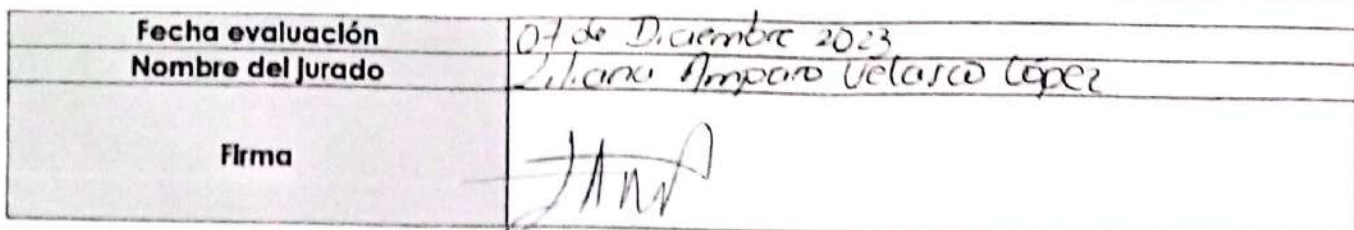 Fecha evaluación 07 de Diciembre 2023
Nombre del Jurado Liliana Amparo Velasco López
Firma